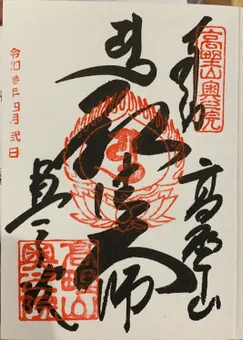 奉拝
高野山奥之院
高野山
弘法大師
奥之院
高野山
奥之院
令和参年四月弐日